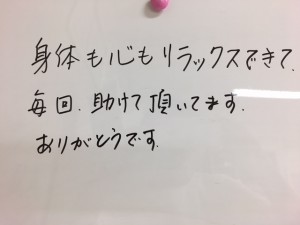 身体も心もリラックスできて、
毎回、助けて頂いてます。
ありがとうです。